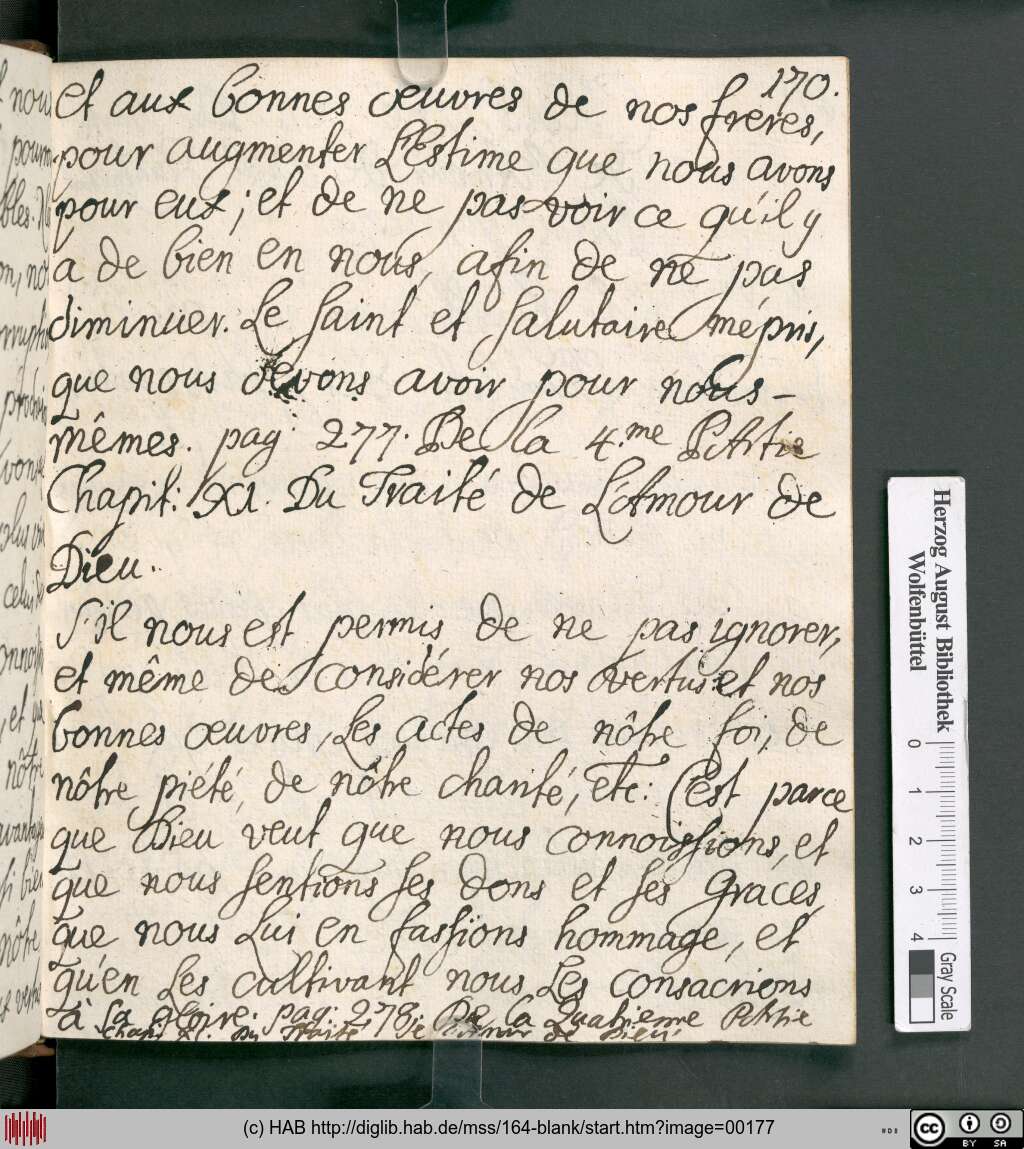 170.
et aux bonnes œuvres de nos freres,
pour augmenter L'Estime que nous avons
pour eux; et de ne pas voir ce qu'il y
a de bien en nous, afin de ne pas
diminuer. Le saint et salutaire mépris,
que nous devons avoir pour nous-
mêmes. pag 277. De la 4.me Partie
Chapit: XI. Du Traité de L'Amour de
Dieu.
S'il nous est permis de ne pas ignorer,
et même de considérer nos vertus et nos
bonnes œuvres, Les actes de nôtre foi, de
nôtre piété, de nôtre charité, etc: C'est parce
que Dieu veut que nous connoissions, et
que nous sentions ses dons et ses Graces,
que nous Lui en fassïons hommage, et
qu'en Les cultivant nous Les consacrions
à Sa Gloire. pag: 278. De La Quatrieme Partie
Chapi XI. Du Traité de L'Amour de Dieu
nou
pourn
bles.
on, no
rruption
celui
, et que
nôtre
avantage
si bien
nôtre
Herzog August Bibliothek
Wolfenbüttel
0 1 2 3 4
Gray Scale
(c) HAB http://diglib.hab.de/mss/164-blank/start.htm?image=00177
cc BY SA